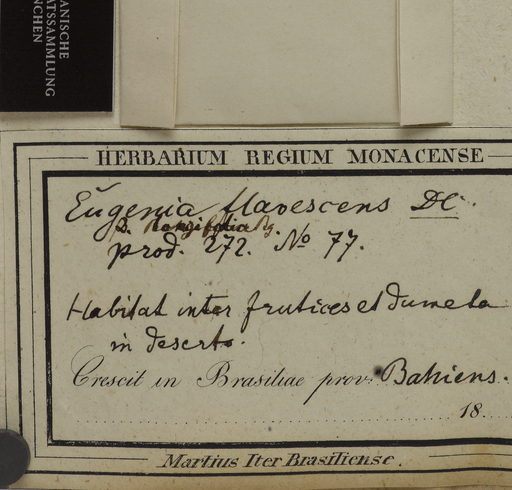 ANISCHE
ATSSAMMLUNG
NCHEN
HERBARIUM REGIUM MONACENSE
Eugenia flavescens DC.
β. longifolia Bg.
prod. 272. No 77.
Habitat inter frutices et dumeta
in deserto.
Crescit in Brasiliae prov. Bahiens.
18
Martius Iter Brasiliense.